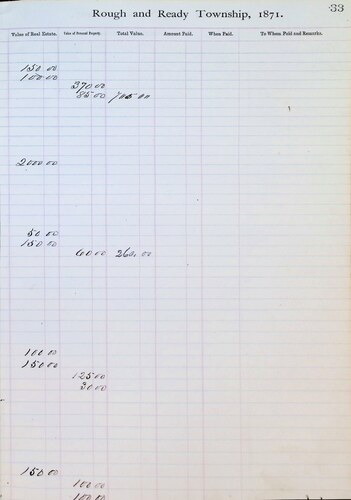 33
Rough and Ready Township, 1871.
Value of Real Estate. Value of Personal Property. Total Value. Amount Paid. When Paid. To Whom Paid and Remarks.
150 00
100 00
370 00
85 00 705 00
2000 00
50 00
150 00
60 00 260.00
100 00
150 00
125 00
30 00
150 00
100 00
100 00